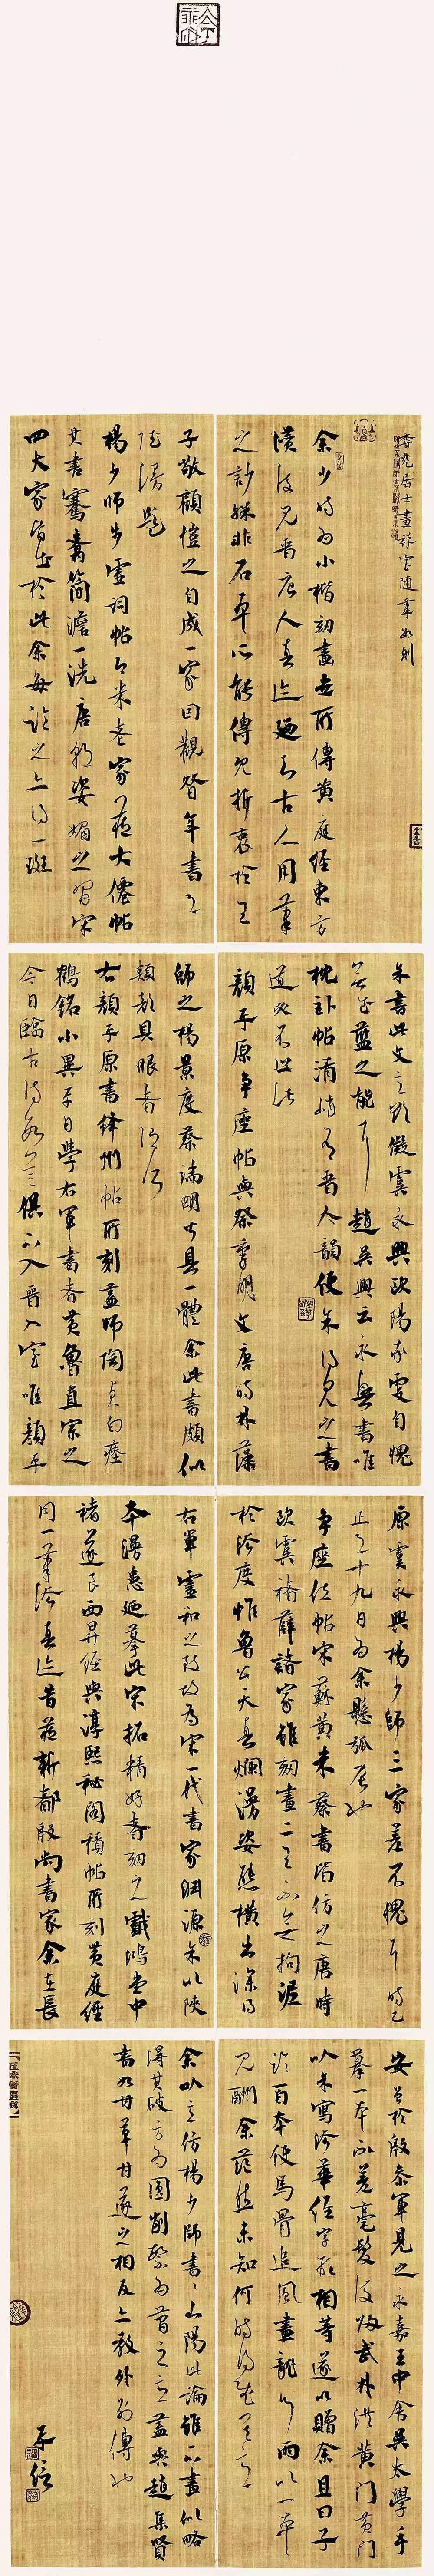 香光居士畫禪室隨筆數則
余少時為小楷刻畫世所傳黃庭經東方
讚後見晉唐人真跡迺知古人用筆
之妙殊非石本所能傳既折衷於王
子敬顧愷之自成一家因觀昔年書
陸漫題
楊少師步虛詞帖即米老家所藏大仙帖
其書騫翥簡澹一洗唐朝姿媚之習宋
四大家皆出於此余每臨之亦得一斑
余書此文意欲擬虞永興歐陽率更自愧
無出藍之能耳 趙吳興云永興書唯
枕卧帖清峭有晉人韻使余得見之書
道必不止此
顏平原爭座帖與祭季明文唐時林藻
師之楊景度蔡端明皆具一體余此書頗似
具眼者
右顏平原書絳州帖所刻蓋師陶貞白瘞
鶴銘小異平日學右軍書者黃魯直宗之
今日臨古得數種俱不入晉人室唯顏平
原虞永興楊少師三家差不愧耳 時乙
正月十九日為余懸弧辰也
爭座位帖宋蘇黃米蔡書皆仿之唐時
歐虞褚薛諸家雖刻畫二王不無拘泥
於法度惟魯公天真爛漫姿態橫出深得
右軍靈和之致故為宋一代書家淵源余以陝
本漫患迺摹此宋拓精好者刻之戲鴻堂中
褚遂良西昇經與淳熙秘閣續帖所刻黃庭經
同一筆法真跡昔藏新都殷尚書家余在長
安曾於殷參軍見之永嘉王中舍吳太學手
摹一本不差毫髮後歸武林洪黃門黃門
以余寫法華經字形相等遂以贈余且曰子
臨百本使馬骨追風畫龍行雨以一本
見酬余茫然未知何時得
余以意仿楊少師書書山陽此論雖不盡似略
得其破方為圓削繁為簡之意蓋與趙集賢
書如甘草甘遂之相反亦教外別傳也
子信